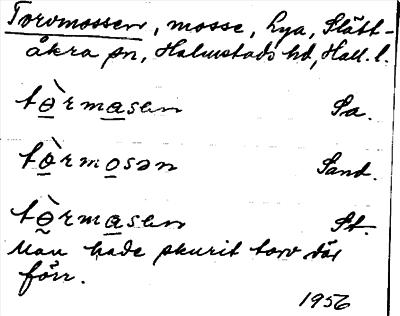 Torvmossen, mosse, Lya, Slätt-
åkra sn, Halmstads hd, Hall. l.
tè̱rma̱sen Sa.
tò̱rmo̱sən Sand.
tɵ̀rma̱sen St.
Man hade skurit torv där
förr.
1956